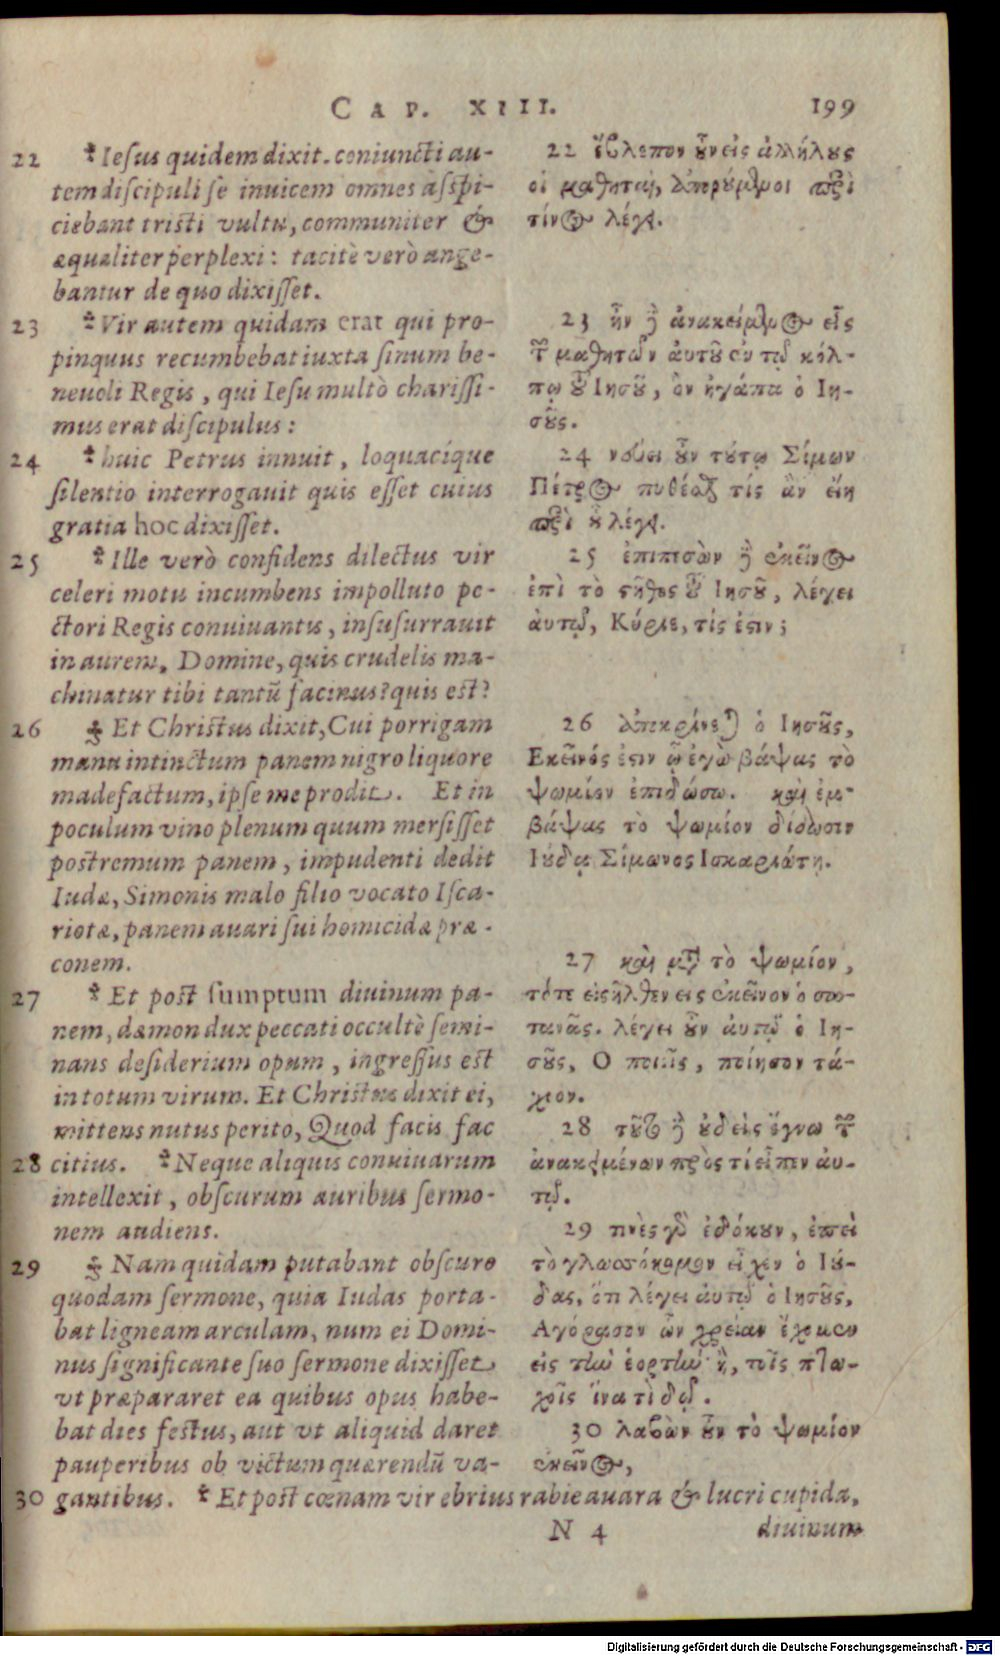 CAP. XIII. 199
22 Iesus quidem dixit. coniuncti au-
tem discipuli se inuicem omnes aspi-
ciebant tristi vultu, communiter &
æqualiter perplexi: tacitè verò ange-
bantur de quo dixisset.
23 Vir autem quidam erat qui pro-
pinquus recumbebat iuxta sinum be-
neuoli Regis, qui Iesu multò charissi-
mus erat discipulus:
24 huic Petrus innuit, loquacíque
silentio interrogauit quis esset cuius
gratia hoc dixisset.
25 Ille verò confidens dilectus vir
celeri motu incumbens impolluto pe-
ctori Regis conuiuantis, insusurrauit
in aurem, Domine, quis crudelis ma-
chinatur tibi tantũ facinus? quis est?
26 Et Christus dixit, Cui porrigam
manu intinctum panem nigro liquore
madefactum, ipse me prodit. Et in
poculum vino plenum quum mersisset
postremum panem, impudenti dedit
Iudæ, Simonis malo filio vocato Isca-
riotæ, panem auari sui homicidæ præ-
conem.
27 Et post sumptum diuinum pa-
nem, dæmon dux peccati occultè semi-
nans desiderium opum, ingressus est
in totum virum. Et Christus dixit ei,
mittens nutus perito, Quod facis fac
28 citius. Neque aliquis conuiuarum
intellexit, obscurum auribus sermo-
nem audiens.
29 Nam quidam putabant obscuro
quodam sermone, quia Iudas porta-
bat ligneam arculam, num ei Domi-
nus significante suo sermone dixisset
vt præpararet ea quibus opus habe-
bat dies festus, aut vt aliquid daret
pauperibus ob victum quærendũ va-
30 gantibus. Et post cœnam vir ebrius rabie auara & lucri cupida,
22 ἔβλεπον οὖν εἰς ἀλλήλους
οἱ μαθηταὶ, ἀπορούμενοι περὶ
τίνος λέγει.
23 ἦν δὲ ἀνακείμενος εἷς
τῶν μαθητῶν αὐτοῦ ἐν τῷ κόλ-
πῳ τοῦ Ιησοῦ, ὃν ἠγάπα ὁ Ιη-
σοῦς.
24 νεύει οὖν τούτῳ Σίμων
Πέτρος πυθέσθαι τίς ἂν εἴη
περὶ οὗ λέγει.
25 ἐπιπεσὼν δὲ ἐκεῖνος
ἐπὶ τὸ στῆθος τοῦ Ιησοῦ, λέγει
αὐτῷ, Κύριε, τίς ἐστιν;
26 ἀπεκρίνεται ὁ Ιησοῦς,
Εκεῖνός ἐστιν ᾧ ἐγὼ βάψας τὸ
ψωμίον ἐπιδώσω. καὶ ἐμ-
βάψας τὸ ψωμίον δίδωσιν
Ιούδᾳ Σίμωνος Ισκαριώτῃ.
27 καὶ μετὰ τὸ ψωμίον,
τότε εἰσῆλθεν εἰς ἐκεῖνον ὁ σα-
τανᾶς. λέγει οὖν αὐτῷ ὁ Ιη-
σοῦς, Ο ποιεῖς, ποίησον τά-
χιον.
28 τοῦτο δὲ οὐδεὶς ἔγνω τῶν
ἀνακειμένων πρὸς τί εἶπεν αὐ-
τῷ.
29 τινὲς γὰρ ἐδόκουν, ἐπεὶ
τὸ γλωσσόκομον εἶχεν ὁ Ιού-
δας, ὅτι λέγει αὐτῷ ὁ Ιησοῦς,
Αγόρασον ὧν χρείαν ἔχομεν
εἰς τὴν ἑορτὴν· ἢ, τοῖς πτω-
χοῖς ἵνα τὶ δῷ.
30 λαβὼν οὖν τὸ ψωμίον
ἐκεῖνος,
N 4 diuinum
Digitalisierung gefördert durch die Deutsche Forschungsgemeinschaft - DFG